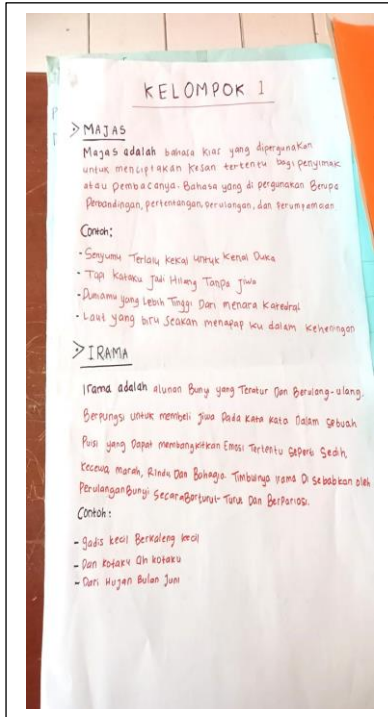 KELOMPOK I
> MAJAS
Majas adalah bahasa kias yang dipergunakan
untuk menciptakan kesan tertentu bagi penyimak
atau pembacanya. Bahasa yang di pergunakan Berupa
Perbandingan, pertentangan, perulangan, dan perumpamaian
Contoh:
- Senyumu Terlalu kekal untuk kenal Duka
- Tapi kataku Jadi Hilang Tanpa Jiwa
- Duniamu yang Lebih Tinggi Dari menara katedral
- Laut yang biru Seakan menatap ku dalam keheningan
> IRAMA
Irama adalah alunan Bunyi yang Teratur Dan Berulang-ulang.
Berpungsi untuk memberi jiwa Pada kata kata Dalam sebuah
Puisi yang Dapat membangkitkan Emosi Tertentu seperti Sedih,
kecewa marah, Rindu Dan Bahagia. Timbulnya irama Di sebabkan oleh
Perulangan Bunyi Secara Berturut-Turut Dan Berpariasi.
Contoh:
- gadis kecil Berkaleng kecil
- Dan kotaku Oh kotaku
- Dari Hujan Bulan Juni